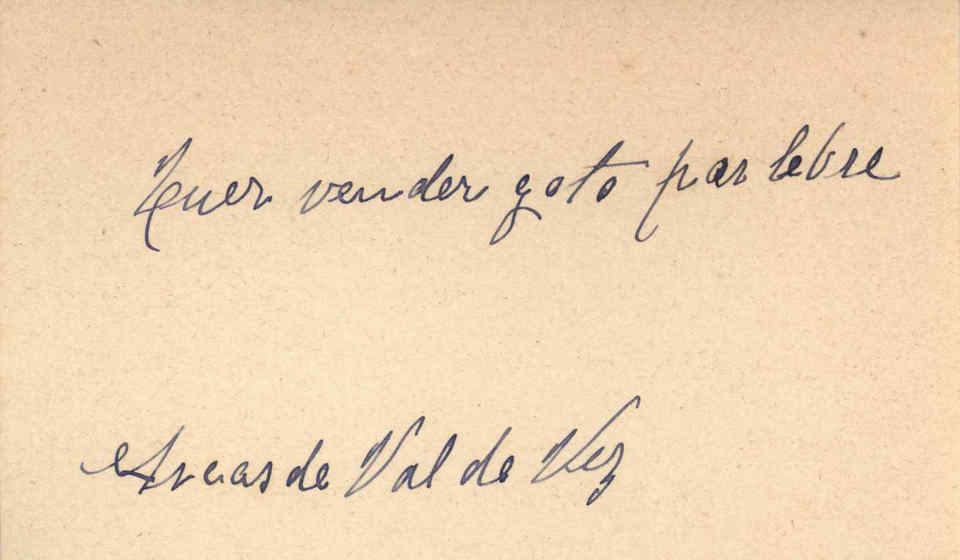 Quer vender gato por lebre
Arcos de Val de Vez